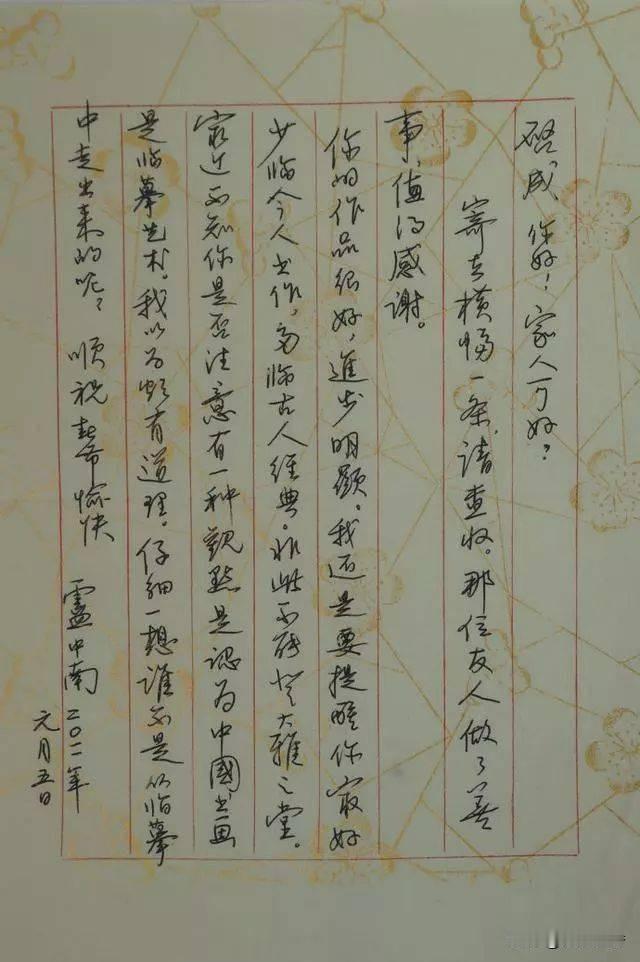 启成 你好！家人可好？
寄去横幅一条，请查收。那位友人做了善
事，值得感谢。
你的作品很好，進步明顯。我还是要提醒你最好
少临今人书作，多临古人经典。非此不能登大雅之堂。
最近不知你是否注意有一种觀點是認为中國书画
是临摹艺术。我以为颇有道理。仔细一想谁不是从临摹
中走出来的呢？ 顺祝 新春愉快 盧中南 二〇一一年
元月五日